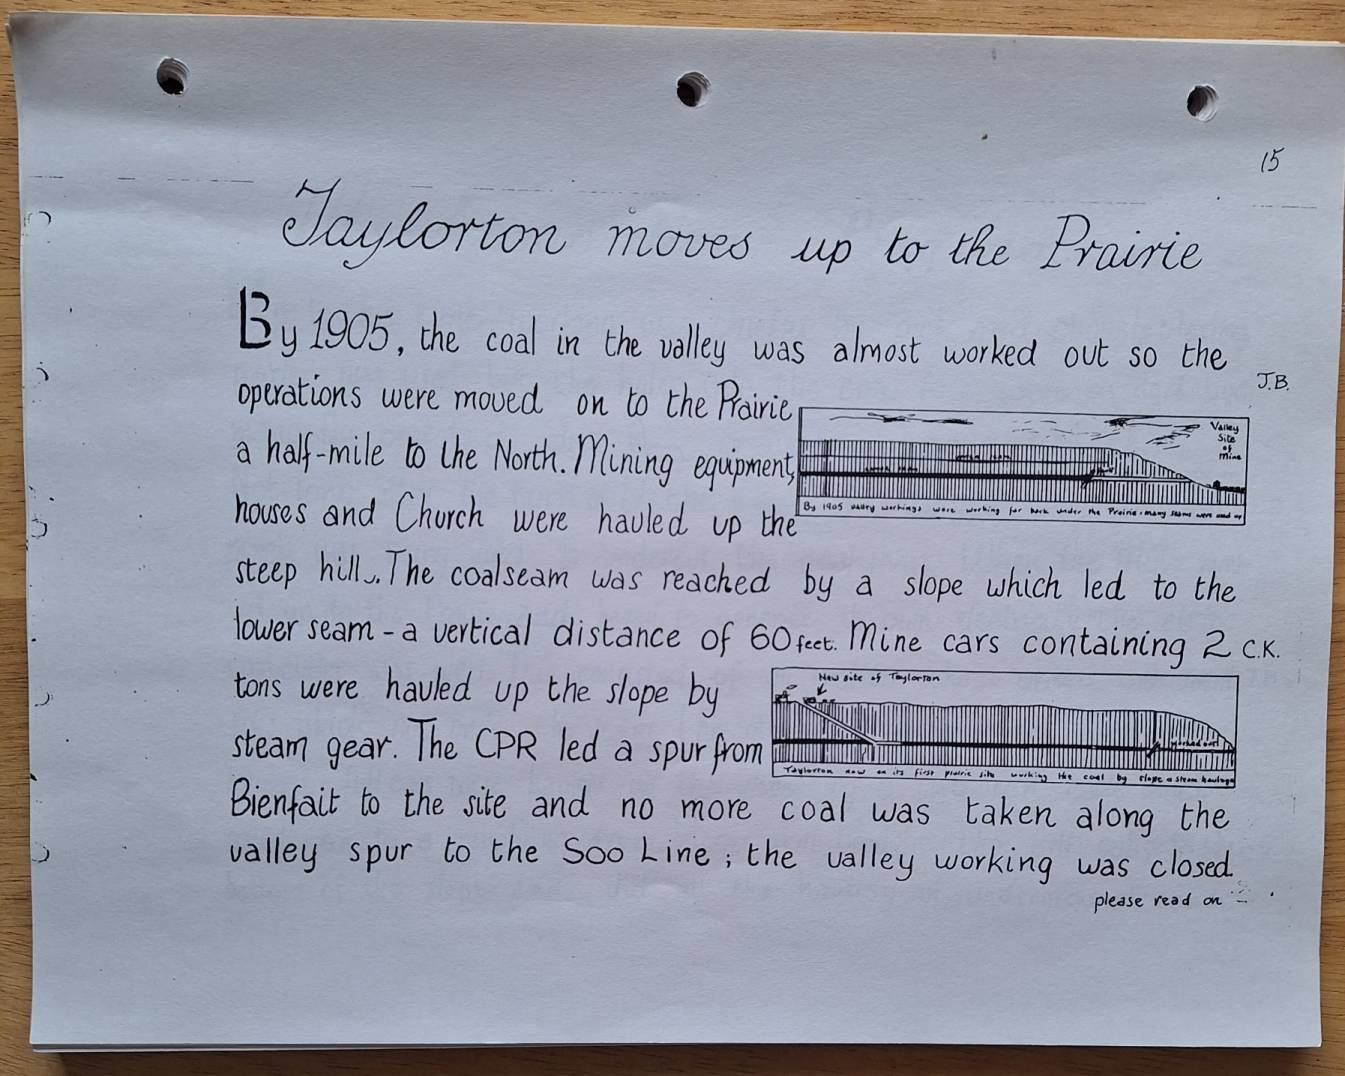 15
Taylorton moves up to the Prairie
By 1905, the coal in the valley was almost worked out so the
J.B.
operations were moved on to the Prairie
a half-mile to the North. Mining equipment,
houses and Church were hauled up the
Valley
Site
of
Mine
By 1905 valley workings were working far back under the Prairie - many seams were used up
steep hill. The coalseam was reached by a slope which led to the
lower seam - a vertical distance of 60 feet. Mine cars containing 2
C.K.
tons were hauled up the slope by
steam gear. The CPR led a spur from
New site of Taylorton
worked out
Taylorton now on its first prairie site working the coal by slope & steam haulage
Bienfait to the site and no more coal was taken along the
valley spur to the Soo Line ; the valley working was closed.
please read on